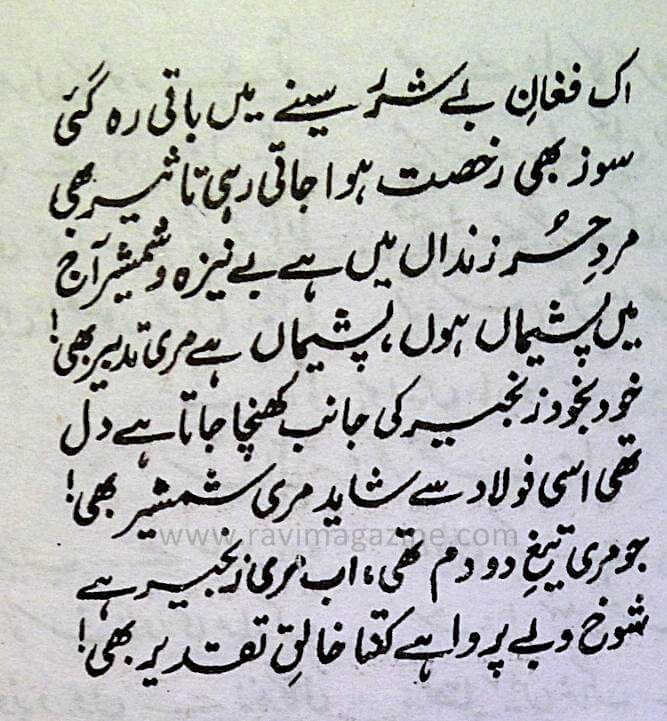 اک فغانِ بے شرر سینے میں باقی رہ گئی
سوز بھی رخصت ہوا جاتی رہی تاثیر بھی
مردِ حُر زنداں میں ہے بے نیزہ و شمشیر آج
میں پشیماں ہوں، پشیماں ہے مری تدبیر بھی!
خود بخود زنجیر کی جانب کھنچا جاتا ہے دل
تھی اسی فولاد سے شاید مری شمشیر بھی!
www.ravimagazine.com
جو مری تیغِ دو دم تھی، اب مری زنجیر ہے
شوخ و بے پروا ہے کتنا خالقِ تقدیر بھی!